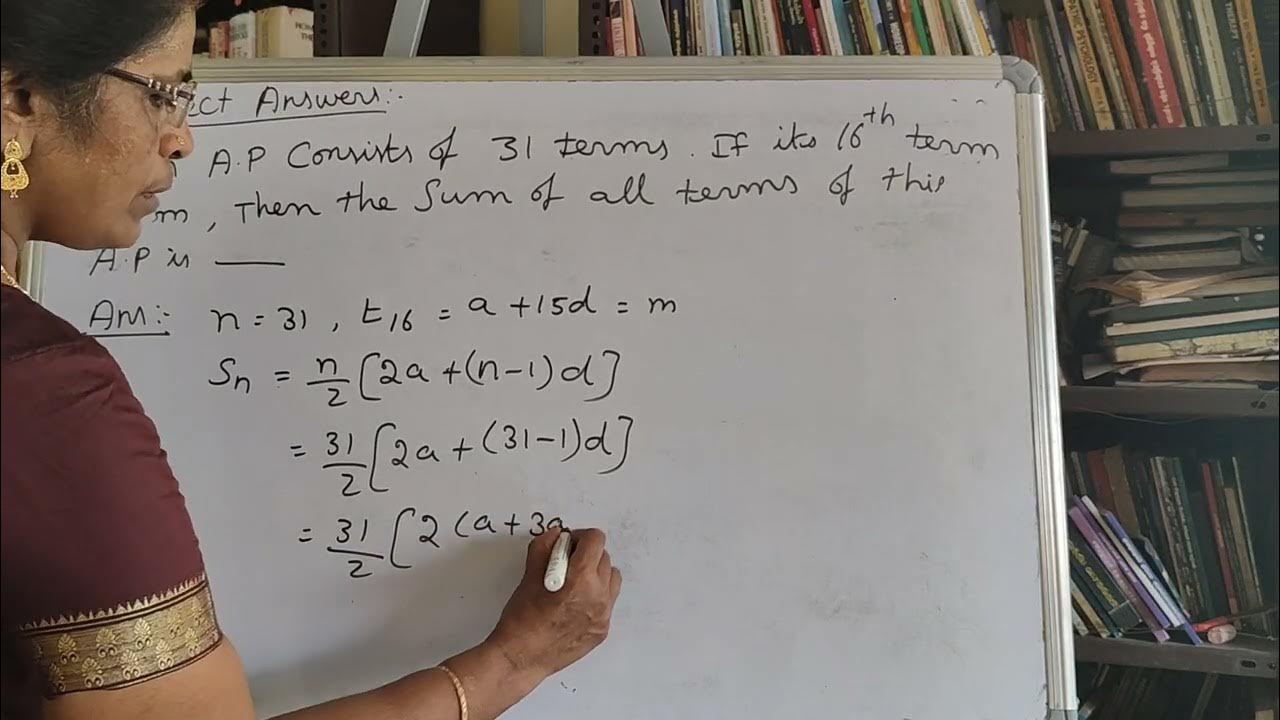 ct Answers:-
A.P Consists of 31 terms. If its 16th term
m, Then the Sum of all terms of this
A.P is ___
Ans:- n = 31, t16 = a + 15d = m
Sn = n/2 [2a + (n-1)d]
= 31/2 [2a + (31-1)d]
= 31/2 [2(a + 3